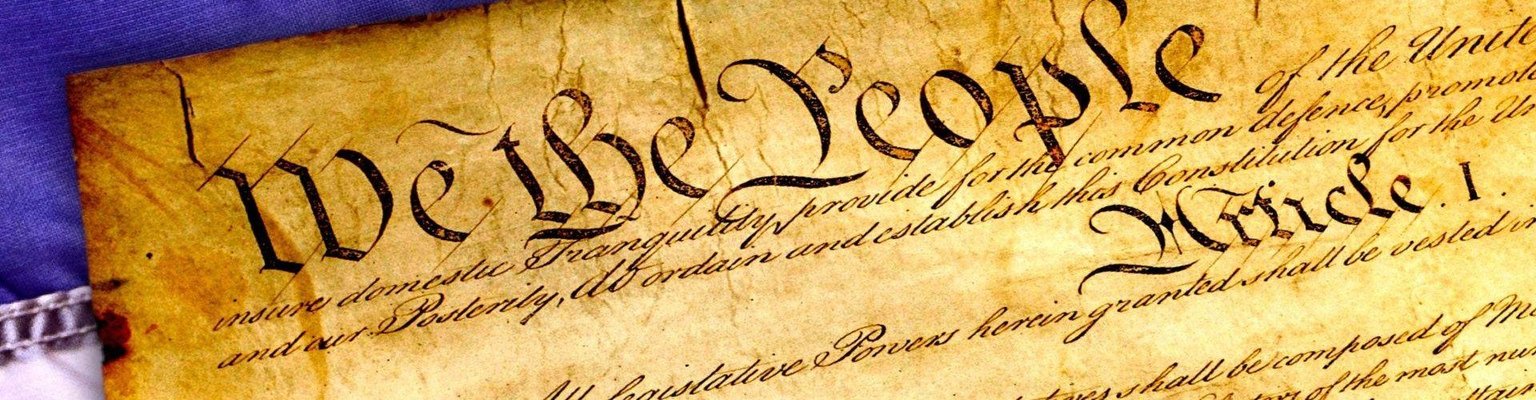 We the People of the Unite
insure domestic Tranquility, provide for the common defence, promot
and our Posterity, do ordain and establish this Constitution for the Un
Article. I.
All legislative Powers herein granted shall be vested
shall be composed of M
of the most nu